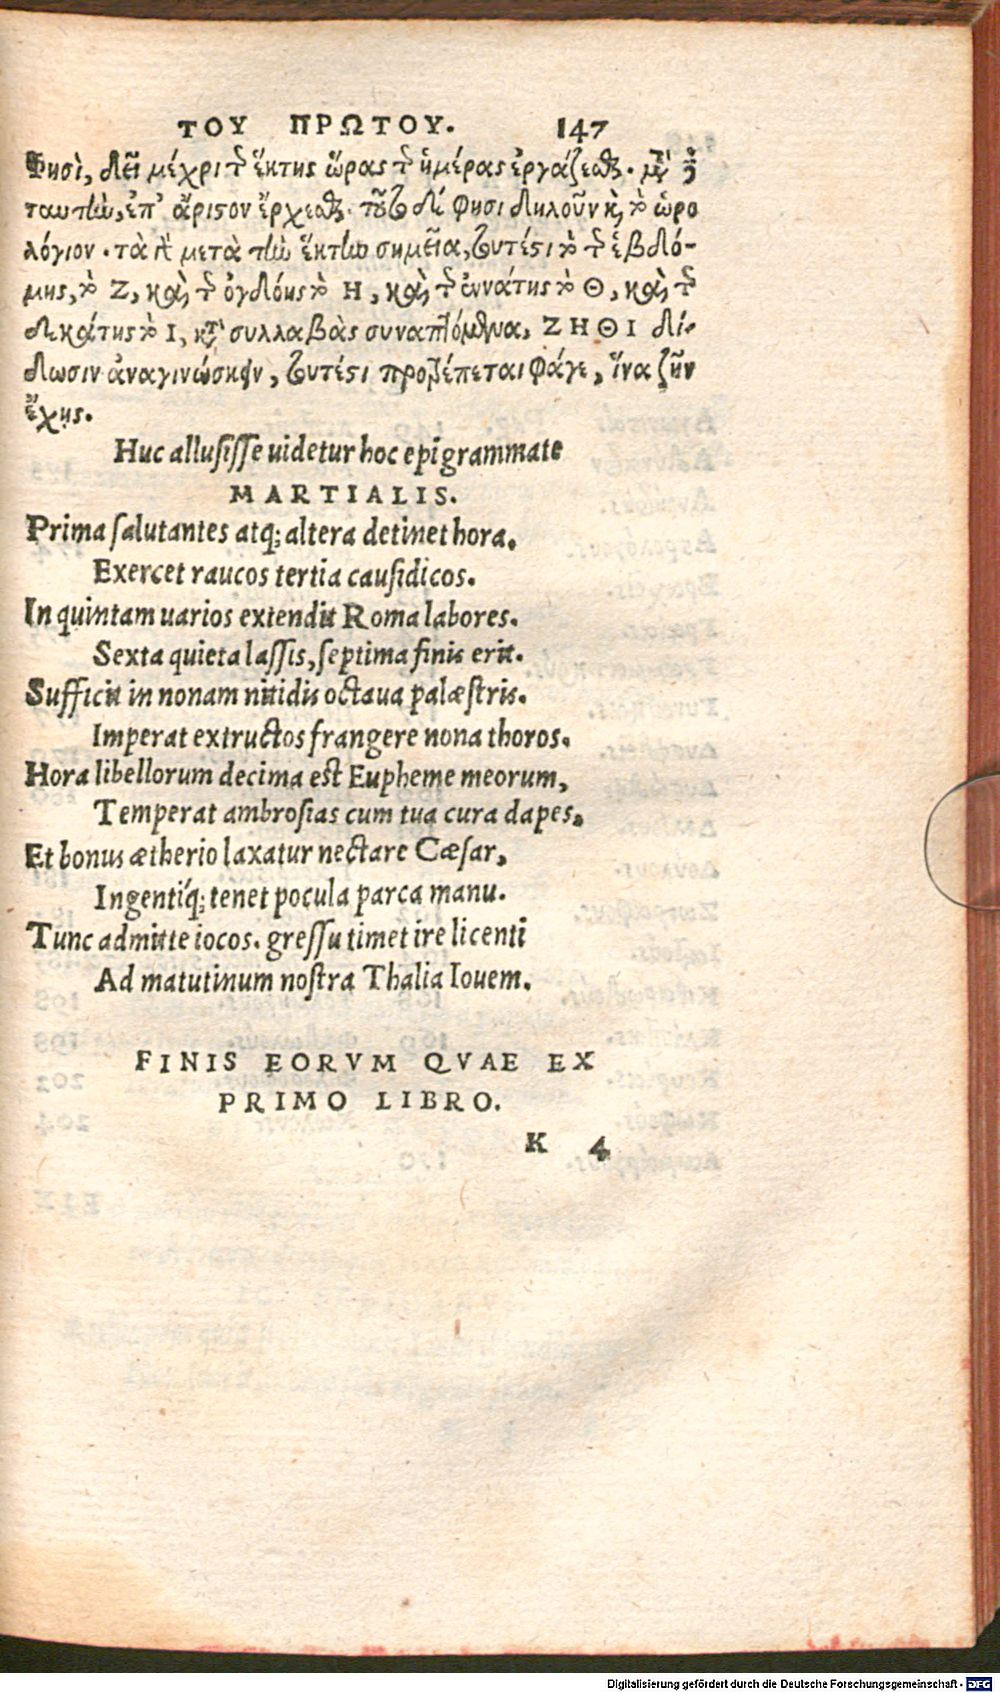 ΤΟΥ ΠΡΩΤΟΥ. 147
φησὶ, δεῖ μέχρι τ ἕκτης ὥρας τ ἡμέρας ἐργάζεσθαι. μετὰ δὲ
ταυτὼ, ἐπ' ἄριστον ἔρχεσθαι. τοῦτο δέ φησι δηλοῦν καὶ τὸ ὡρο
λόγιον. τὰ γὰρ μετὰ τὼ ἕκτω σημεῖα, τουτέστι τὸ τ ἑβδό-
μης, τὸ Ζ, καὶ τ ὀγδόης τὸ Η, καὶ τ ἐννάτης τὸ Θ, καὶ τ
δεκάτης τὸ Ι, κατὰ συλλαβὰς συναπτόμενα, ΖΗΘΙ δί-
δωσιν ἀναγινώσκειν, τουτέστι προτρέπεται φάγε, ἵνα ζῆν
ἔχης.
Huc allusisse uidetur hoc epigrammate
MARTIALIS.
Prima salutantes atq; altera detinet hora.
Exercet raucos tertia causidicos.
In quintam uarios extendit Roma labores.
Sexta quieta lassis, septima finis erit.
Sufficit in nonam nitidis octaua palæstris.
Imperat extructos frangere nona thoros.
Hora libellorum decima est Eupheme meorum,
Temperat ambrosias cum tua cura dapes.
Et bonus ætherio laxatur nectare Cæsar,
Ingentíq; tenet pocula parca manu.
Tunc admitte iocos. gressu timet ire licenti
Ad matutinum nostra Thalia Iouem.
FINIS EORVM QVAE EX
PRIMO LIBRO.
K 4
Digitalisierung gefördert durch die Deutsche Forschungsgemeinschaft - DFG